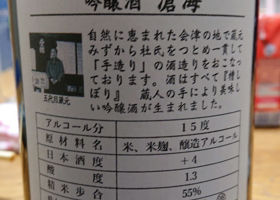 吟醸酒 滄海
自然に恵まれた会津の地で蔵元
みずから杜氏をつとめ一貫して
「手造り」の酒造りをおこなっ
ております。酒はすべて『槽し
ぼり』 蔵人の手により美味し
い吟醸酒が生まれました。
五代目蔵元
アルコール分 15度
原材料名 米、米麹、醸造アルコール
日本酒度 +4
酸度 1.3
精米歩合 55%